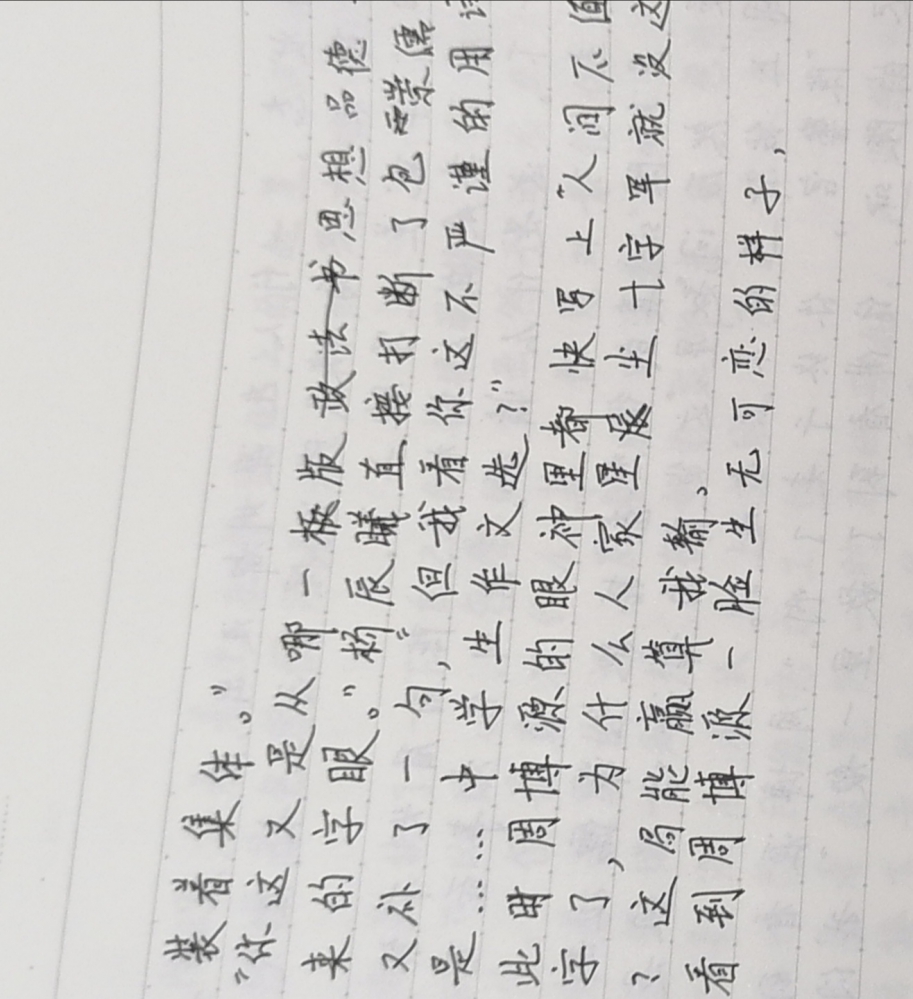 装着集体。"
"你这又是从哪一板版政法书思想品德
来的字眼。"杨辰曦直接打断了包
又补了一句,"但我看你这不严谨的用
是……中学生作文选?"
此时周博源的眼神里都快写上"人间不值
字了,为什么人家星辰坐十字军就没这
?这局能赢算我输。
看到周博源一脸生无可恋的样子,